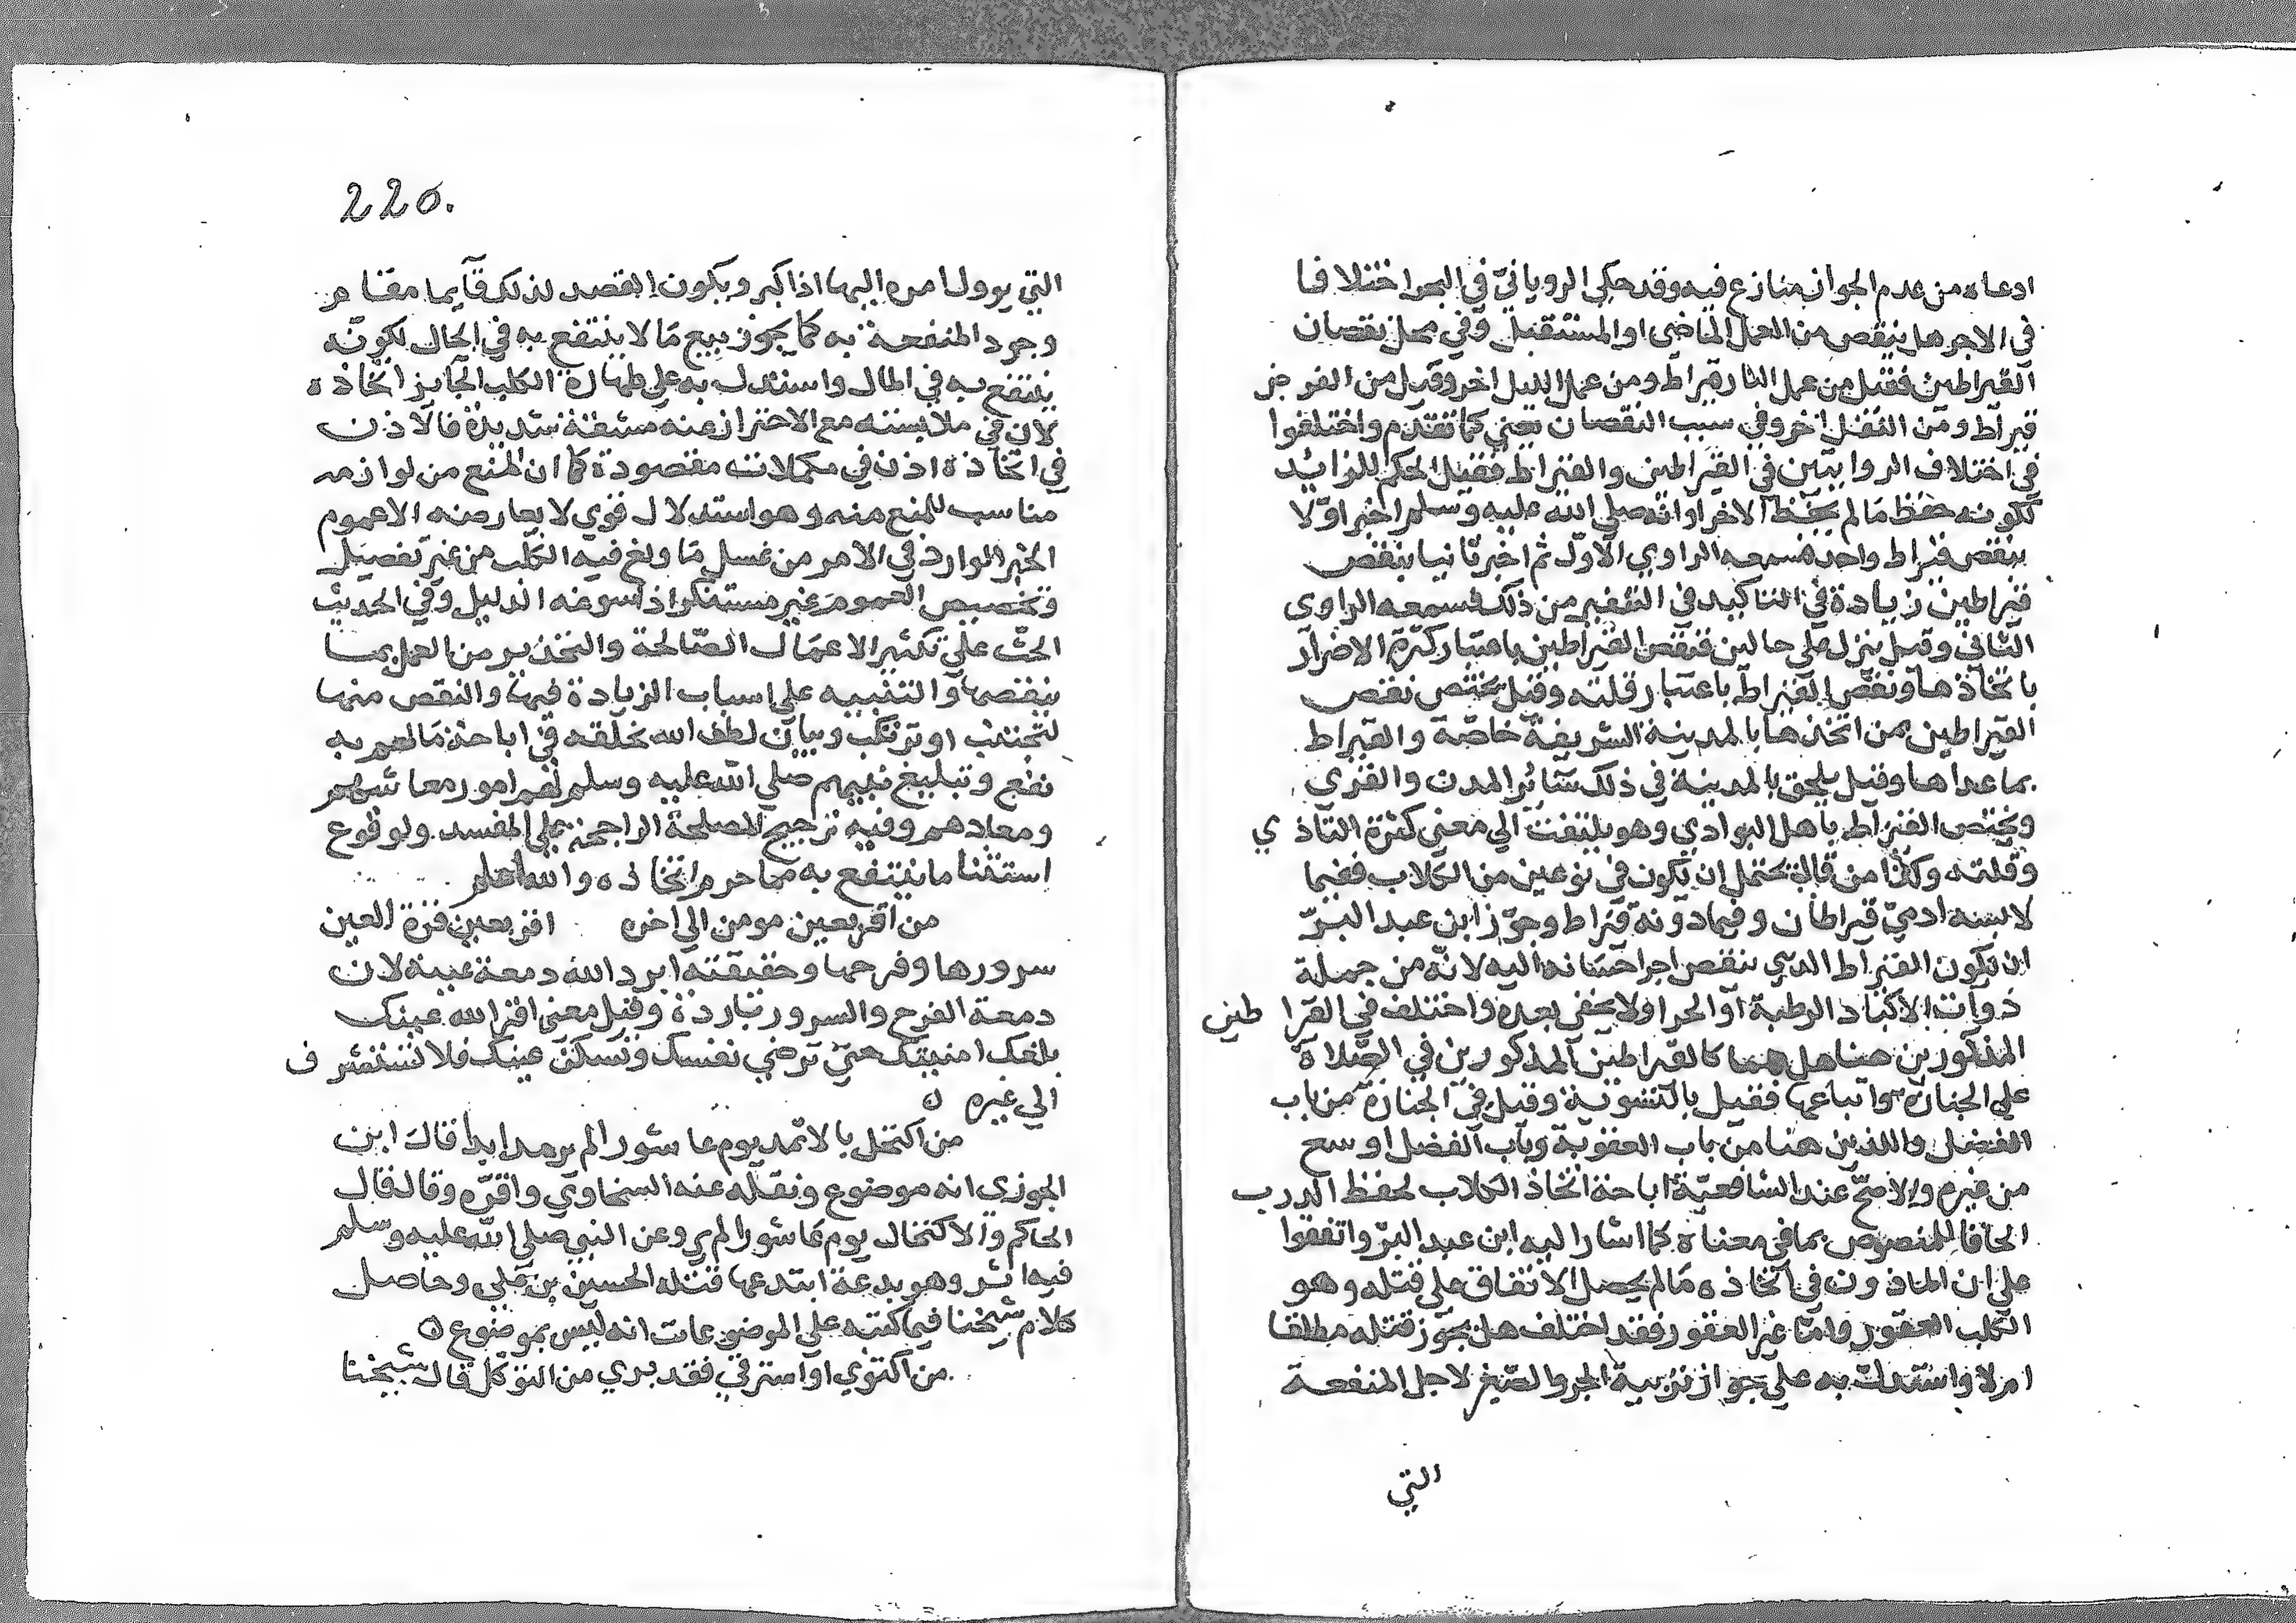 ادعاه من عدم الجواز منازع فيه وقد حكي الروياني في البحر اختلافا
في الاجر هل ينقص من العمل الماضي او المستقبل وفي محل نقصان
القيراطين فقيل من عمل النهار قيراط ومن عمل الليل اخر وقيل من الفرض
قيراط ومن النفل اخر وفي سبب النقصان يعني كما تقدم واختلفوا
في اختلاف الروايتين في القيراطين والقيراط فقيل الحكم للزائد
لكونه حفظ ما لم يحفظ الاخر او انه صلي الله عليه وسلم اخبر اولا
بنقص قيراط واحد فسمعه الراوي الاول ثم اخبر ثانيا بنقص
قيراطين زيادة في التاكيد في التنفير من ذلك فسمعه الراوي
الثاني وقيل ينزل علي حالين فنقص القيراطين باعتبار كثرة الاضرار
باتخاذها ونقص القيراط باعتبار قلته وقيل يختص نقص
القيراطين بمن اتخذها بالمدينة الشريفة خاصة والقيراط
بما عداها وقيل يلحق بالمدينة في ذلك سائر المدن والقري
ويختص القيراط باهل البوادي وهو يلتفت الي معني كثرة التاذي
وقلته وكذا من قال يحتمل ان يكون في نوعين من الكلاب ففيما
لابسه ادمي قيراطان وفيما دونه قيراط وجوز ابن عبد البر
ان يكون القيراط الذي ينقص اجر احسانه اليه لانه من جملة
ذوات الاكباد الرطبة او الحرا ولا يخفي بعده واختلف في القيرا طين
المذكورين هنا هل هما كالقيراطين المذكورين في الصلاة
علي الجنازة واتباعها فقيل بالتسوية وقيل في الجنازة من باب
الفضل واللذين هنا من باب العقوبة وباب الفضل اوسع
من غيره والاصح عند الشافعية اباحة اتخاذ الكلاب لحفظ الدرب
الحاقا للمنصوص بما في معناه كما اشار اليه ابن عبد البر واتفقوا
علي ان الماذون في اتخاذه ما لم يحصل الاتفاق علي قتله وهو
الكلب العقور واما غير العقور فقد اختلف هل يجوز قتله مطلقا
ام لا واستدل به علي جواز تربية الجرو الصغير لاجل المنفعة
التي
220.
التي يوول امره اليها اذا كبر ويكون القصد لذلك قايما مقام
وجود المنفعة به كما يجوز بيع ما لا ينتفع به في الحال لكونه
ينتفع به في المال واستدل به علي طهارة الكلب الجايز اتخاذه
لان في ملابسته مع الاحتراز عنه مشقة شديدة فالاذن
في اتخاذه اذن في مكملات مقصودة كما ان المنع من لوازمه
مناسب للمنع منه وهو استدلال قوي لا يعارضه الا عموم
الخبر الوارد في الامر من غسل ما ولغ فيه الكلب من غير تفصيل
وتخصيص العموم غير مستنكر اذا سوغه الدليل وفي الحديث
الحث علي تكثير الاعمال الصالحة والتحذير من العمل بما
ينقصها والتنبيه علي اسباب الزيادة فيها والنقص منها
لتجتنب او ترتكب وبيان لطف الله بخلقه في اباحة ما لهم به
نفع وتبليغ نبيهم صلي الله عليه وسلم لهم امور معاشهم
ومعادهم وفيه ترجيح المصلحة الراجحة علي المفسد ولوقوع
استثنا ما ينتفع به مما حرم اتخاذه والله اعلم
من اقر بعين مومن الي اخره اقر بعين قرة العين
سرورها وفرحها وحقيقته ابرد الله دمعة عينه لان
دمعة الفرح والسرور باردة وقيل معني اقر الله عينك
بلغك امنيتك حتي ترضي نفسك وتسكن عينك فلا تستشرف
الي غيره ه
من اكتحل بالاثمد يوم عاشورا لم يرمد ابدا قال ابن
الجوزي انه موضوع ونقله عنه السخاوي واقره وقال قال
الحاكم والاكتحال يوم عاشورا لم يرو عن النبي صلي الله عليه وسلم
فيه اثر وهو بدعة ابتدعها قتلة الحسين بن علي وحاصل
كلام شيخنا فيما كتبه علي الموضوعات انه ليس بموضوع ه
من اكتوي او استرقي فقد بري من التوكل قال شيخنا